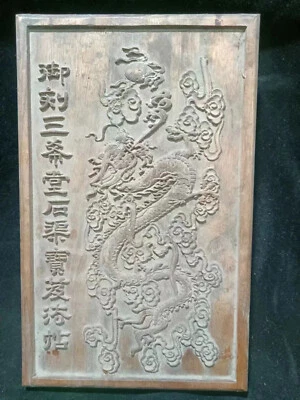 御刻三希堂石渠寶笈法帖